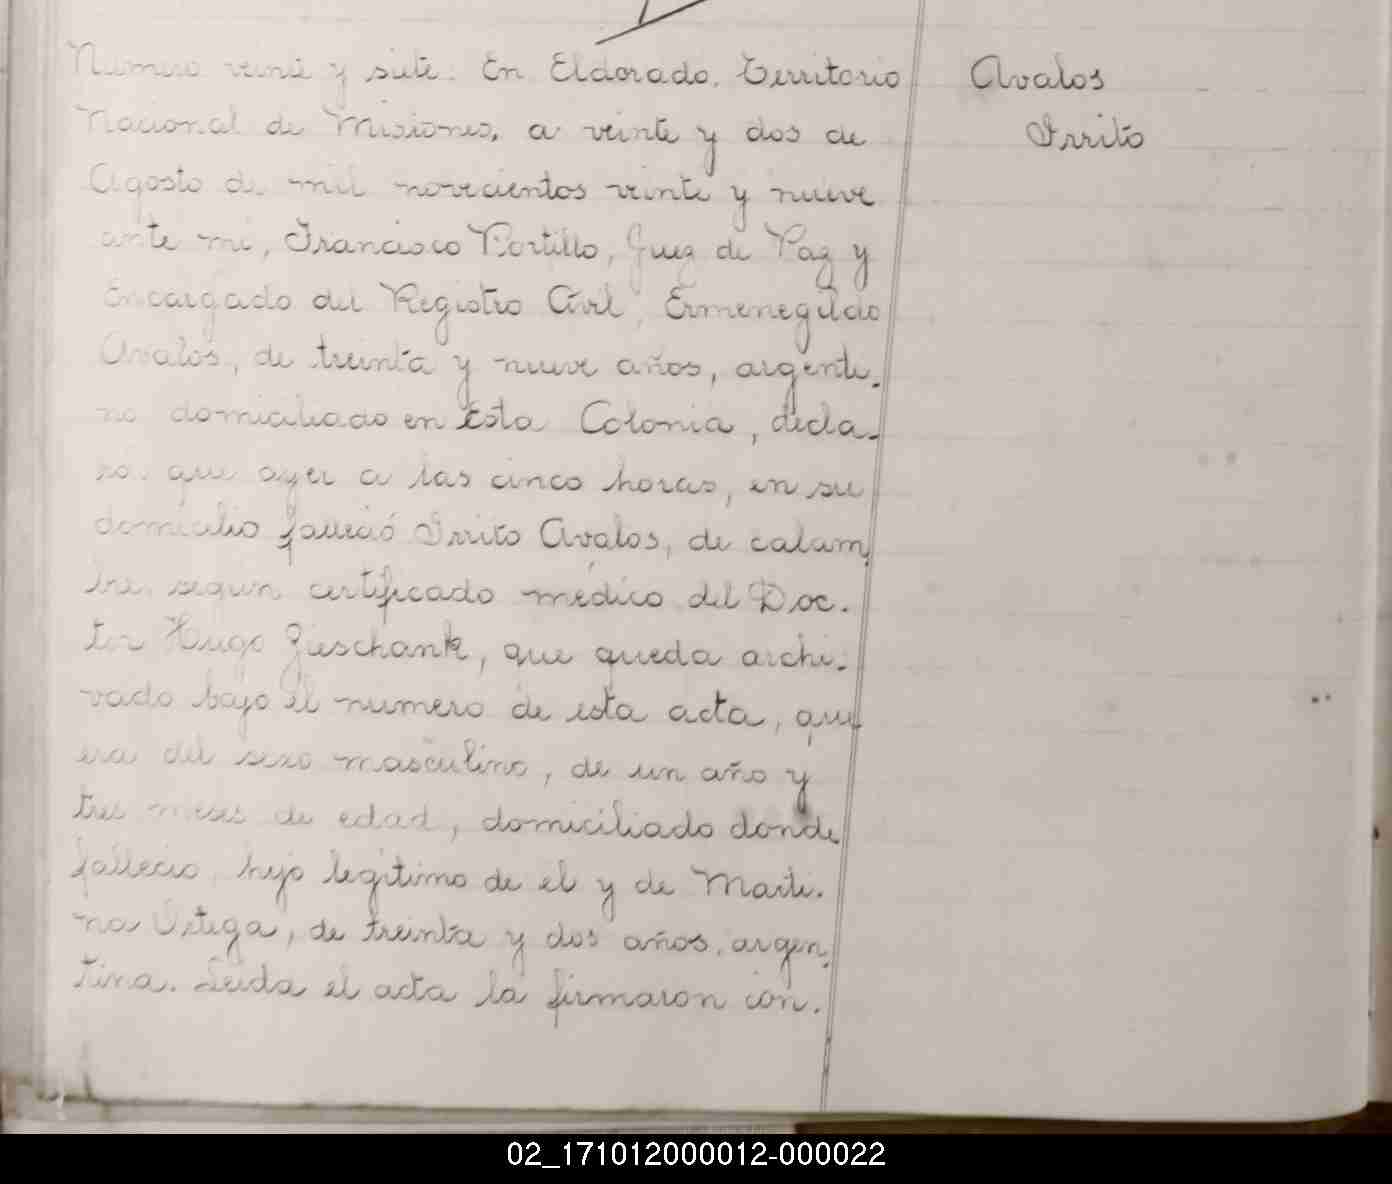 Numero veinte y siete. En Eldorado, Territorio
Nacional de Misiones, a veinte y dos de
Agosto de mil novecientos veinte y nueve
ante mi, Francisco Portillo, Juez de Paz y
Encargado del Registro Civil, Ermenegildo
Avalos, de treinta y nueve años, argenti-
no domiciliado en esta Colonia, decla-
ró: que ayer a las cinco horas, en su
domicilio falleció Irrito Avalos, de calam
bre, segun certificado médico del Doc-
tor Hugo Zieschank, que queda archi-
vado bajo el numero de esta acta, que
era del sexo masculino, de un año y
tres meses de edad, domiciliado donde
fallecio, hijo legitimo de el y de Marti-
na Ortega, de treinta y dos años, argen
tina. Leida el acta la firmaron con-
Avalos
Irrito
02_171012000012-000022